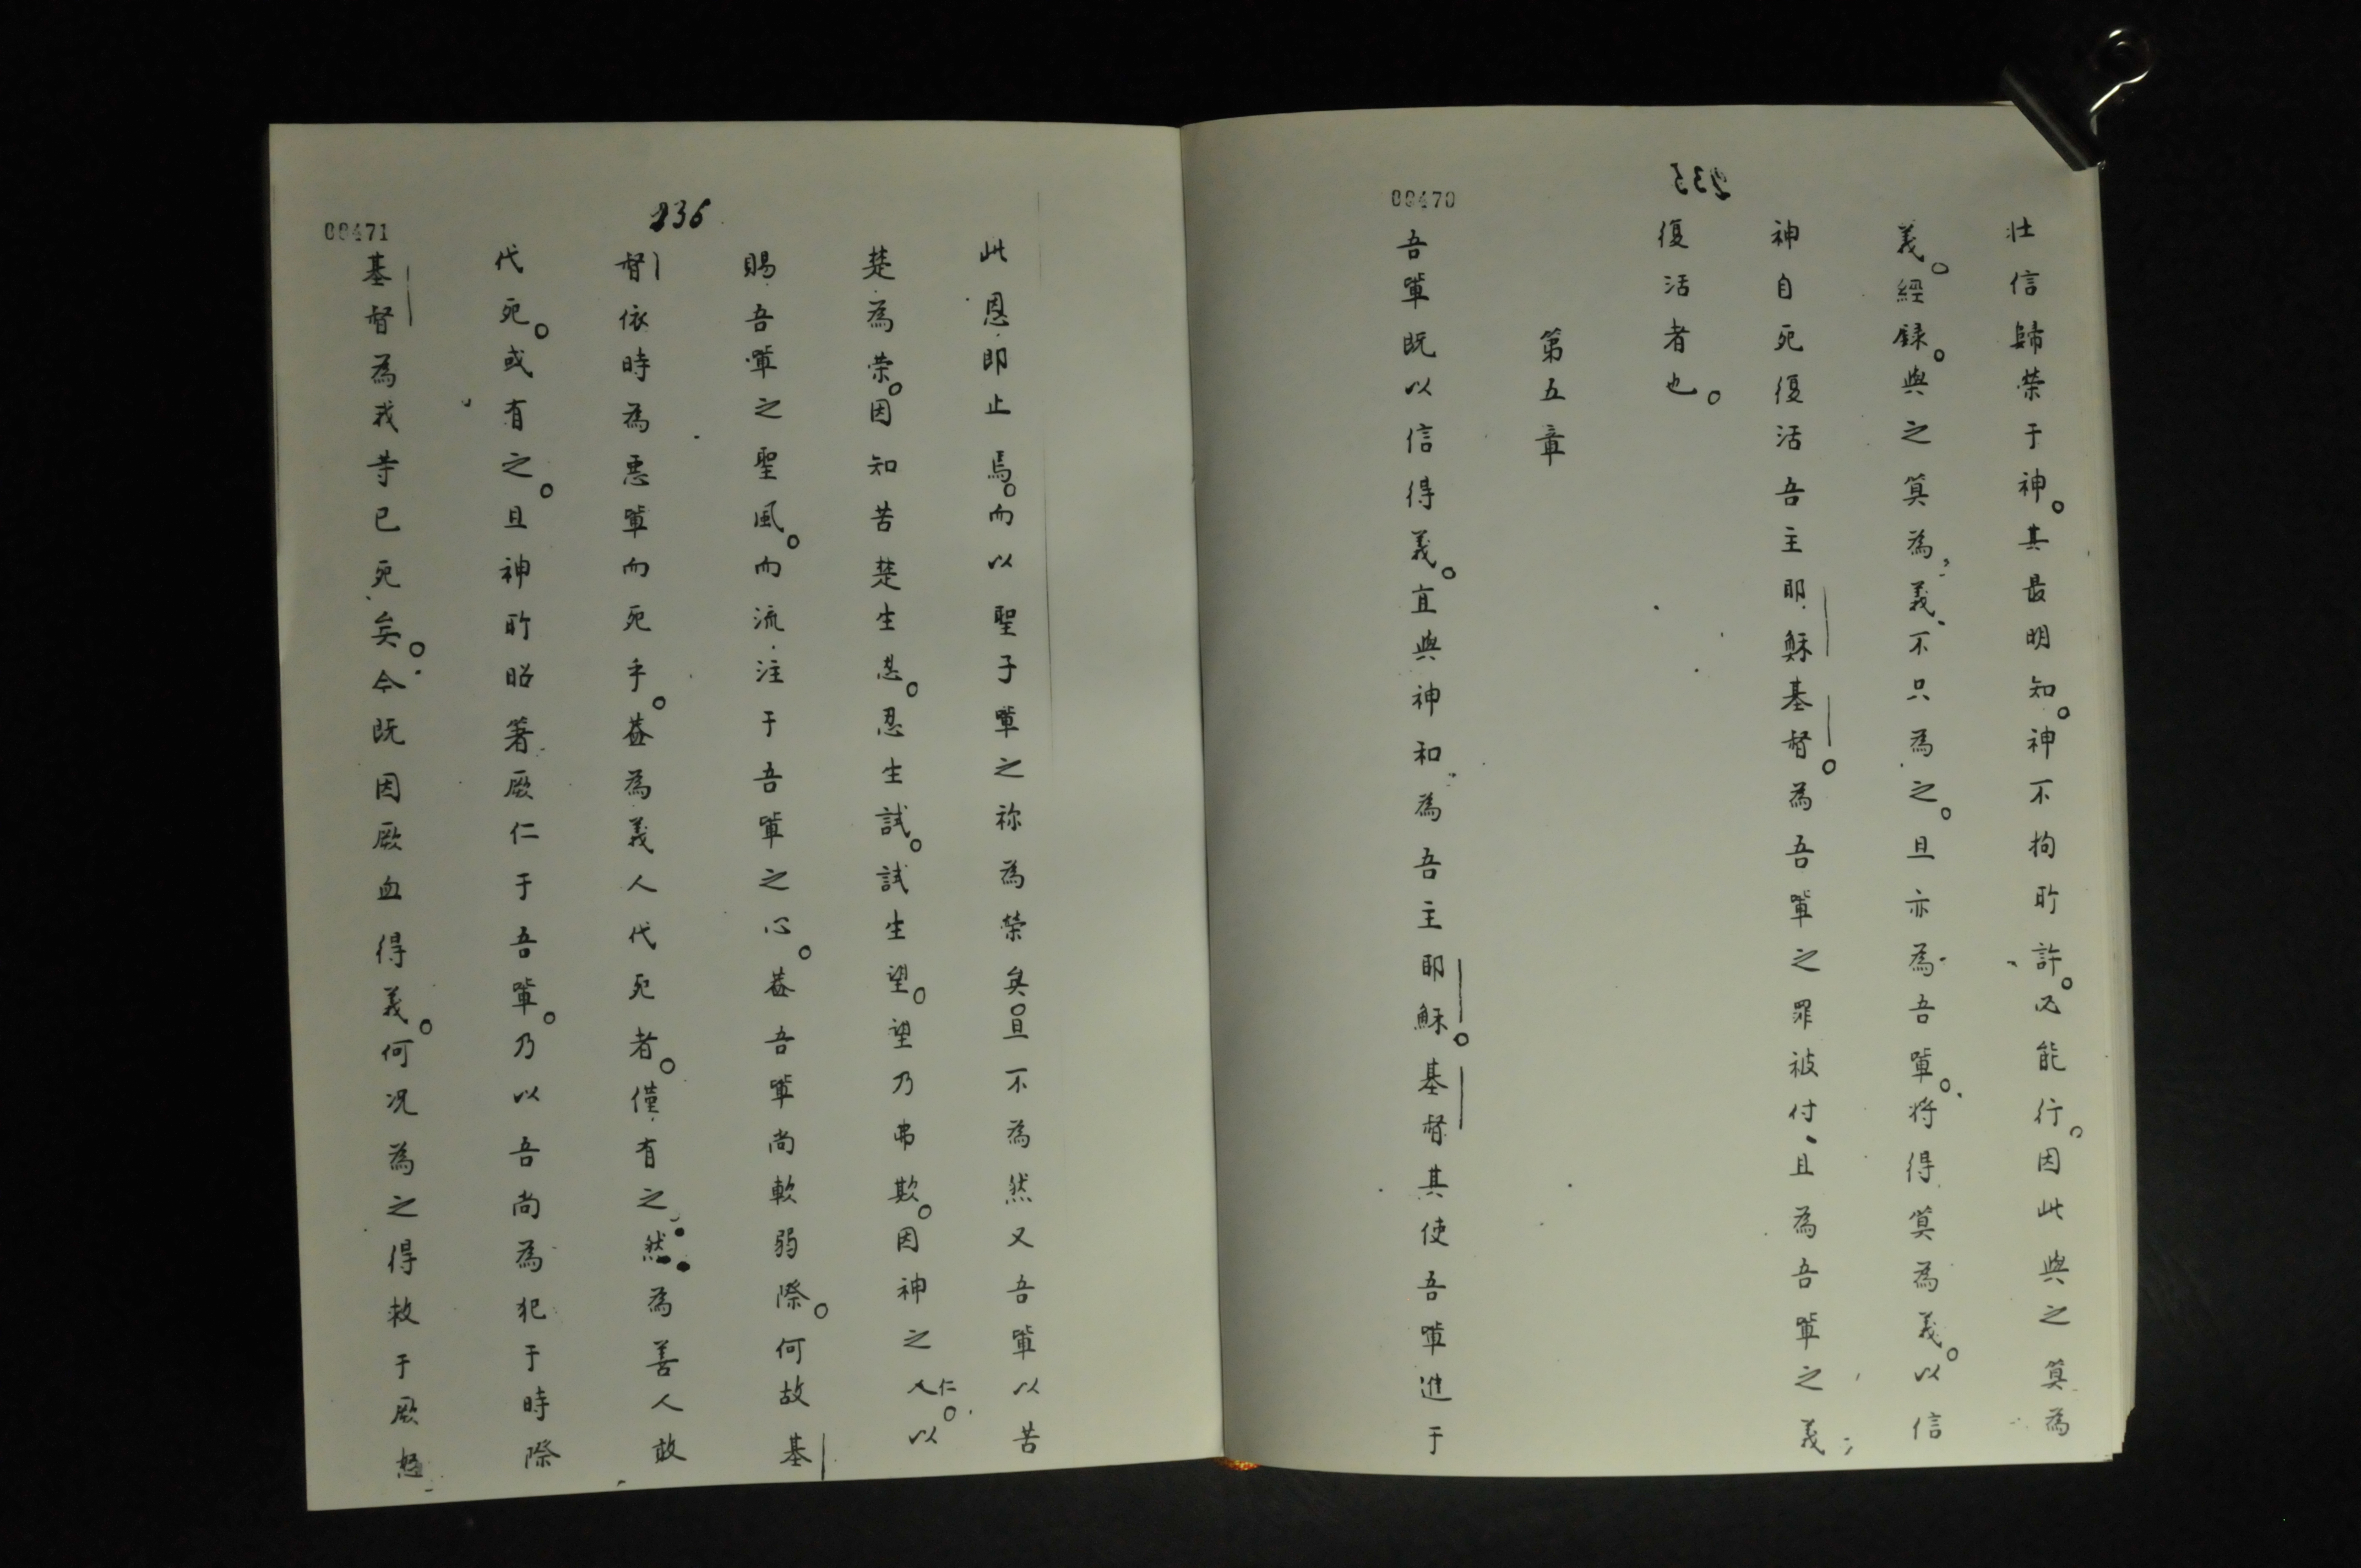 00470
235
壯信歸榮于神。其最明知。神不拘所許。必能行。因此與之算為
義。經錄。與之算為義、不只為之。且亦為吾輩。将得算為義。以信
神自死復活吾主耶穌基督。為吾輩之罪被付、且為吾輩之義
復活者也。
第五章
吾輩既以信得義。宜與神和為吾主耶穌。基督其使吾輩進于
236
00471
此恩即止焉。而以聖子輩之祢為榮矣。且不為然又吾輩以苦
楚為榮。因知苦楚生忍。忍生試。試生望。望乃弗欺。因神之仁。以
賜吾輩之聖風。而流注于吾輩之心。蓋吾輩尚軟弱際。何故基
督依時為惡輩而死乎。蓋為義人代死者。僅有之。然為善人敢
代死。或有之。且神所昭著厥仁于吾輩。乃以吾尚為犯于時際
基督為我等已死矣。今既因厥血得義。何况為之得救于厥怒